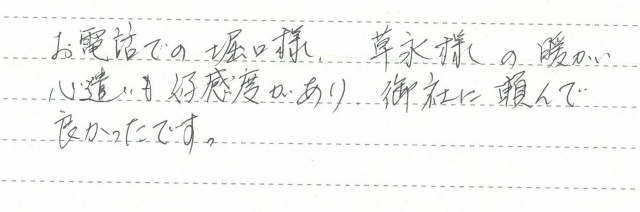 お電話での堀口様、草永様の暖かい
心遣いも好感度があり、御社に頼んで
良かったです。